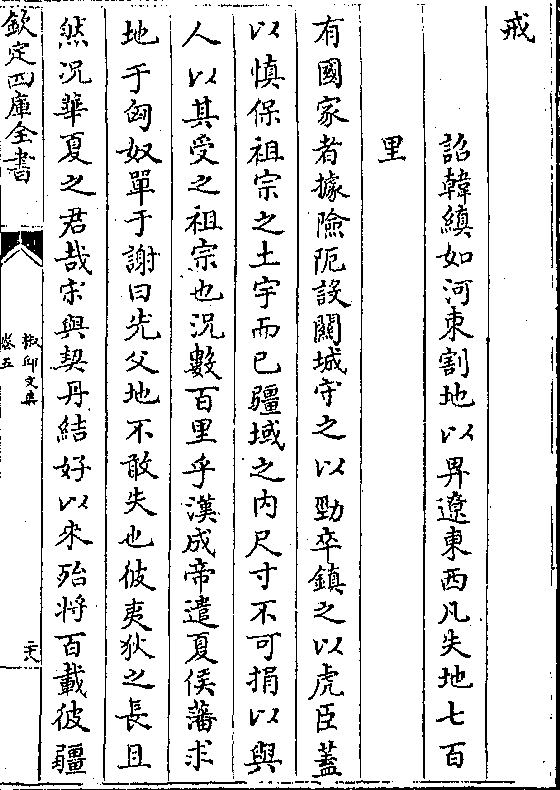 戒
詔韓縝如河東割地以畀遼東西凡失地七百
里
有國家者據險阨設關城守之以勁卒鎮之以虎臣蓋
以慎保祖宗之土宇而已疆域之内尺寸不可捐以與
人以其受之祖宗也況數百里乎漢成帝遣夏侯藩求
地于匈奴單于謝曰先父地不敢失也彼夷狄之長且
然况華夏之君哉宋與契丹結好以來殆将百載彼疆
欽定四庫全書
椒邱文集
卷五
二十八